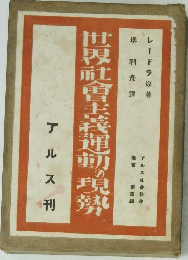 レードラ原著
堺利彦譯
世界社會主義運動の現勢
アルス刊